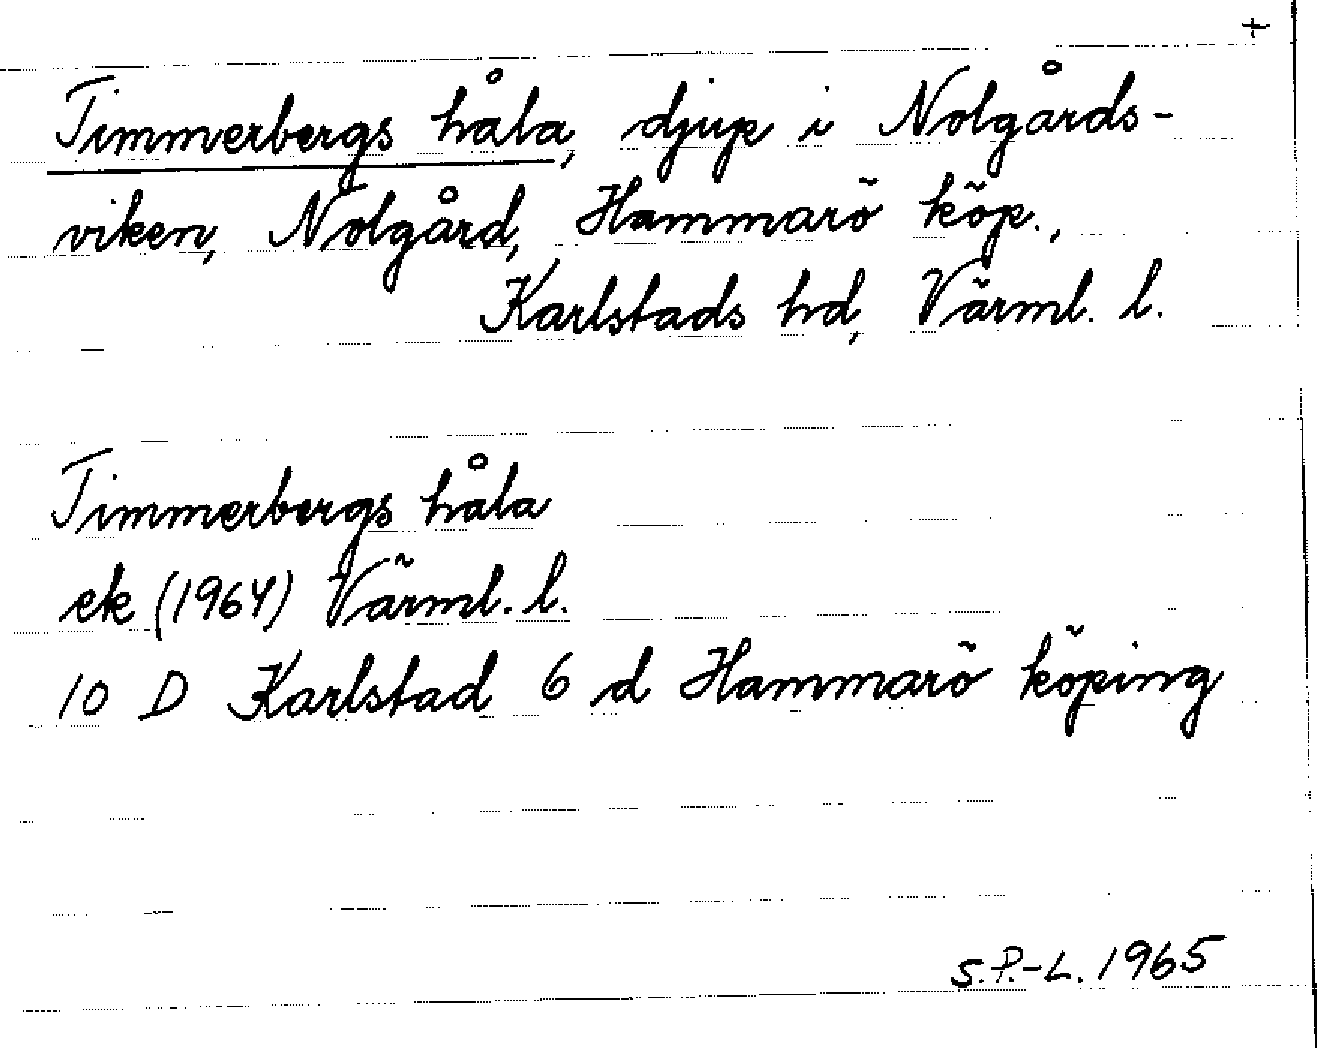 +
Timmerbergs håla, djup i Nolgårds-
viken, Nolgård, Hammarö köp.,
Karlstads hd, Värml. l.
Timmerbergs håla
ek (1964) Värml. l.
10 D Karlstad 6 d Hammarö köping
S.P.-L. 1965